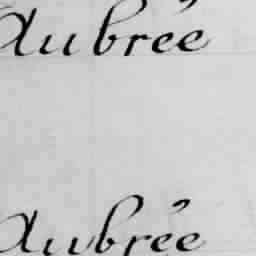 Aubrée
Aubrée